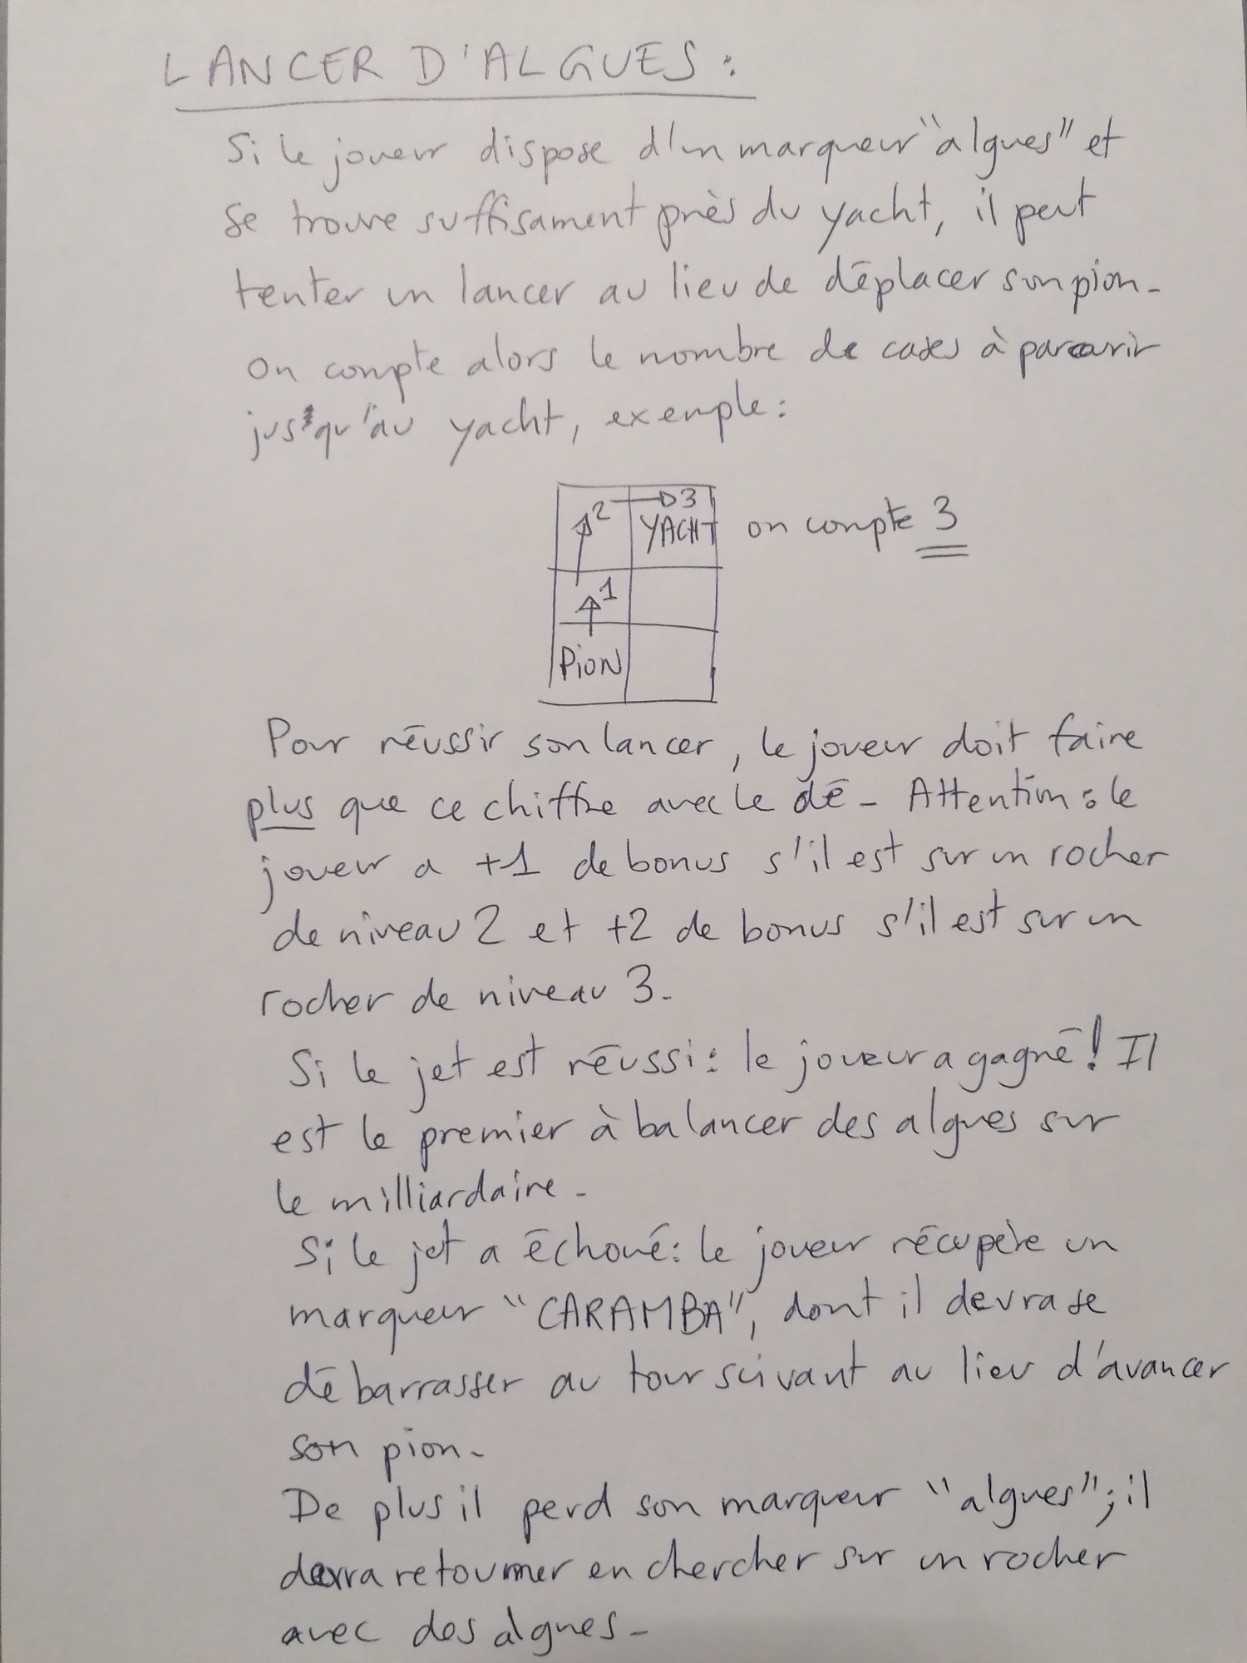 LANCER D'ALGUES :
Si le joueur dispose d'un marqueur "algues" et
se trouve suffisament près du yacht, il peut
tenter un lancer au lieu de déplacer son pion.
On compte alors le nombre de cases à parcourir
jusqu'au yacht, exemple :
2 → 3
YACHT on compte 3
1
PION
Pour réussir son lancer, le joueur doit faire
plus que ce chiffre avec le dé. Attention : le
joueur a +1 de bonus s'il est sur un rocher
de niveau 2 et +2 de bonus s'il est sur un
rocher de niveau 3.
Si le jet est réussi : le joueur a gagné ! Il
est le premier à balancer des algues sur
le milliardaire.
Si le jet a échoué : le joueur récupère un
marqueur "CARAMBA", dont il devra se
débarrasser au tour suivant au lieu d'avancer
son pion.
De plus il perd son marqueur "algues" ; il
devra retourner en chercher sur un rocher
avec des algues.